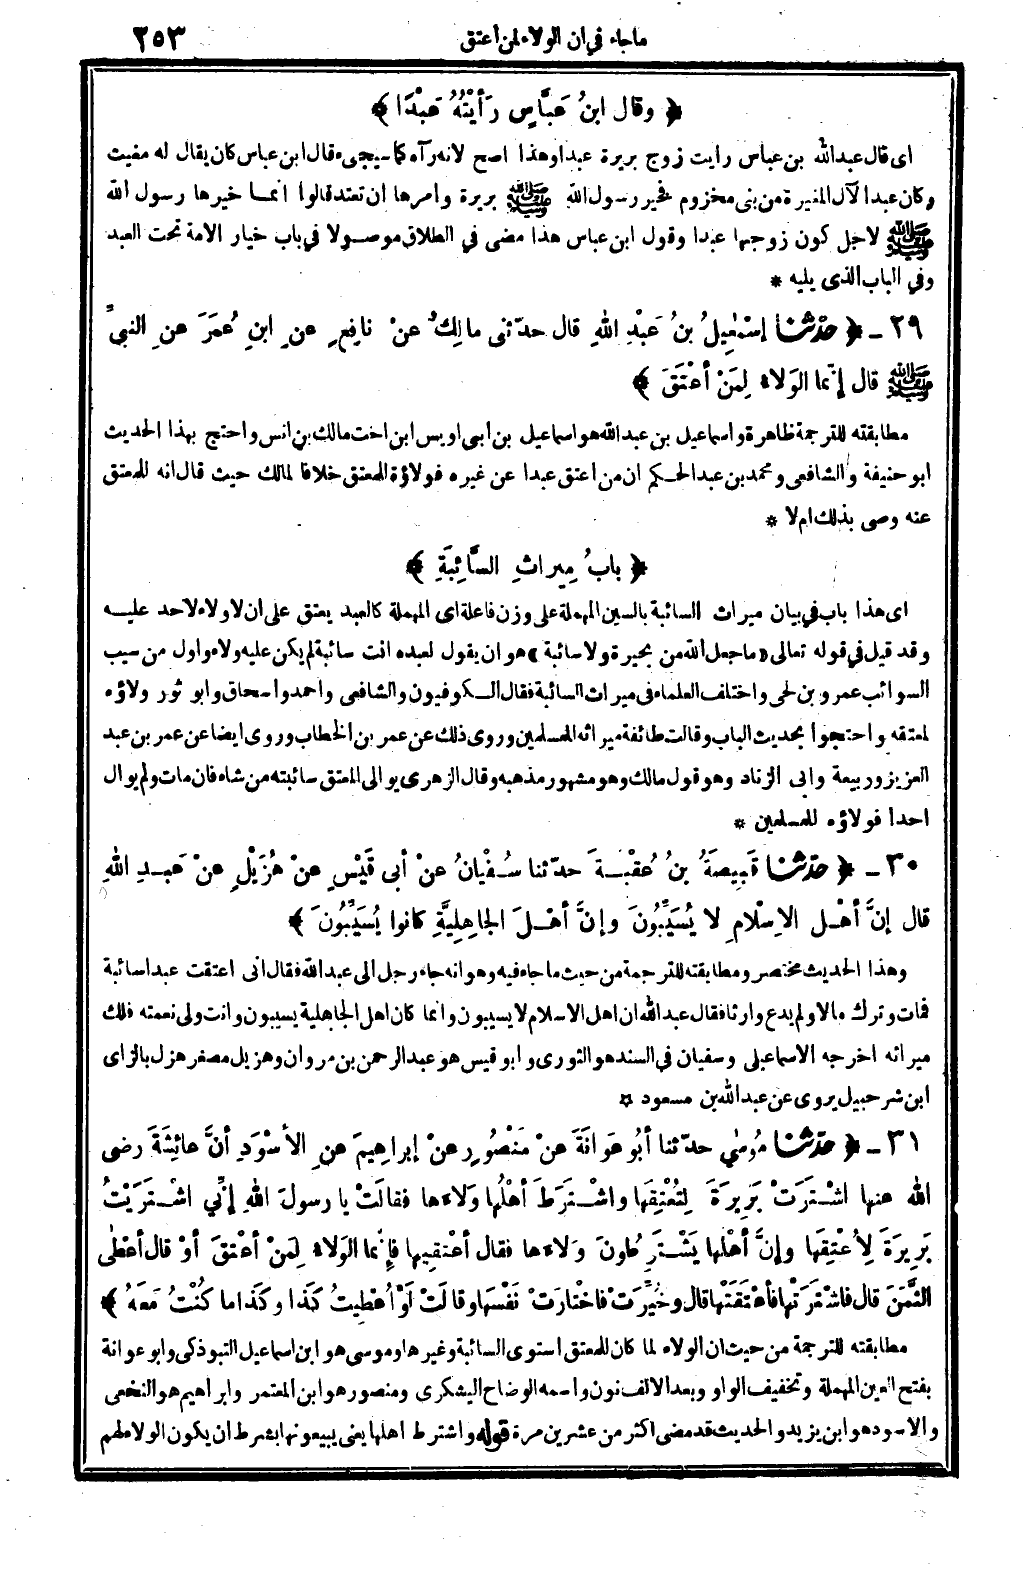 ماجاء في ان الولاء لمن أعتق ٢٥٣
﴿ وقال ابنُ عَبَّاسٍ رَأيْتُهُ عَبْدًا ﴾
اى قال عبدالله بن عباس رايت زوج بريرة عبدا وهذا اصح لانه رآه كما سيجىء قال ابن عباس كان يقال له مغيث
وكان عبدا لآل المغيرة من بنى مخزوم فخير رسول الله ﷺ بريرة وامرها ان تعتد قالوا انما خيرها رسول الله
ﷺ لاجل كون زوجها عبدا وقول ابن عباس هذا مضى في الطلاق موصولا في باب خيار الامة تحت العبد
وفي الباب الذى يليه *
٢٩ ـ ﴿ حدّثنا إسْمٰعِيلُ بنُ عَبْدِ اللهِ قال حدّثنى مالِكٌ عنْ نافِعٍ عنِ ابنِ عُمَرَ عنِ النبيِّ
ﷺ قال إنَّما الوَلاءُ لِمَنْ أعْتَقَ ﴾
مطابقته للترجمة ظاهرة واسماعيل بن عبدالله هو اسماعيل بن ابى اويس ابن اخت مالك بن انس واحتج بهذا الحديث
ابو حنيفة والشافعى ومحمد بن عبد الحكم ان من اعتق عبدا عن غيره فولاؤه للمعتق خلافا لمالك حيث قال انه للمعتق
عنه وصى بذلك ام لا *
﴿ بابُ مِيراثِ السَّائِبَةِ ﴾
اى هذا باب في بيان ميراث السائبة بالسين المهملة على وزن فاعلة اى المهملة كالعبد يعتق على ان لا ولاء لاحد عليه
وقد قيل في قوله تعالى «ما جعل الله من بحيرة ولا سائبة» هو ان يقول لعبده انت سائبة لم يكن عليه ولاء واول من سيب
السوائب عمرو بن لحى واختلف العلماء فى ميراث السائبة فقال الكوفيون والشافعى واحمد واسحاق وابو ثور ولاؤه
لمعتقه واحتجوا بحديث الباب وقالت طائفة ميراثه للمسلمين وروى ذلك عن عمر بن الخطاب وروى ايضا عن عمر بن عبد
العزيز وربيعة وابى الزناد وهو قول مالك وهو مشهور مذهبه وقال الزهرى يوالى المعتق سائبته من شاء فان مات ولم يوال
احدا فولاؤه للمسلمين *
٣٠ ـ ﴿ حدّثنا قَبِيصَةُ بنُ عُقْبَةَ حدّثنا سُفْيانُ عنْ أبى قَيْسٍ عنْ هُزَيْلٍ عنْ عبدِ اللهِ
قال إنَّ أهْلَ الإسْلامِ لا يُسَيِّبُونَ وإنَّ أهْلَ الجاهِلِيَّةِ كانوا يُسَيِّبُونَ ﴾
وهذا الحديث مختصر ومطابقته للترجمة من حيث ما جاء فيه وهو انه جاء رجل الى عبدالله فقال انى اعتقت عبدا سائبة
فمات وترك مالا ولم يدع وارثا فقال عبدالله ان اهل الاسلام لا يسيبون وانما كان اهل الجاهلية يسيبون وانت ولى نعمته فلك
ميراثه اخرجه الاسماعيلى وسفيان في السند هو الثورى وابو قيس هو عبدالرحمن بن مروان وهزيل مصغر هزل بالزاى
ابن شرحبيل يروى عن عبدالله بن مسعود *
٣١ ـ ﴿ حدّثنا مُوسٰي حدّثنا أبُو عَوانَةَ عنْ مَنْصُورٍ عنْ إبراهِيمَ عنِ الأسْوَدِ أنَّ عائِشَةَ رضى
الله عنها اشْتَرَتْ بَرِيرَةَ لِتُعْتِقَها واشْتَرَطَ أهْلُها وَلاءَها فقالَتْ يا رسولَ اللهِ إنِّي اشْتَرَيْتُ
بَرِيرَةَ لِأُعْتِقَها وإنَّ أهْلَها يَشْتَرِطُونَ وَلاءَها فقال أعْتِقِيها فإنَّما الوَلاءُ لِمَنْ أعْتَقَ أوْ قال أعْطٰى
الثَّمَنَ قال فاشْتَرَتْها فأعْتَقَتْها قال وخُيِّرَتْ فاخْتارَتْ نَفْسَها وقالَتْ لَوْ أُعْطِيتُ كَذا وكَذا ما كُنْتُ مَعَهُ ﴾
مطابقته للترجمة من حيث ان الولاء لما كان للمعتق استوى السائبة وغيرها وموسى هو ابن اسماعيل التبوذكى وابو عوانة
بفتح العين المهملة وتخفيف الواو وبعد الالف نون واسمه الوضاح اليشكرى ومنصور هو ابن المعتمر وابراهيم هو النخعى
والاسود هو ابن يزيد والحديث قد مضى اكثر من عشرين مرة قوله واشترط اهلها يعنى يبيعونها بشرط ان يكون الولاء لهم